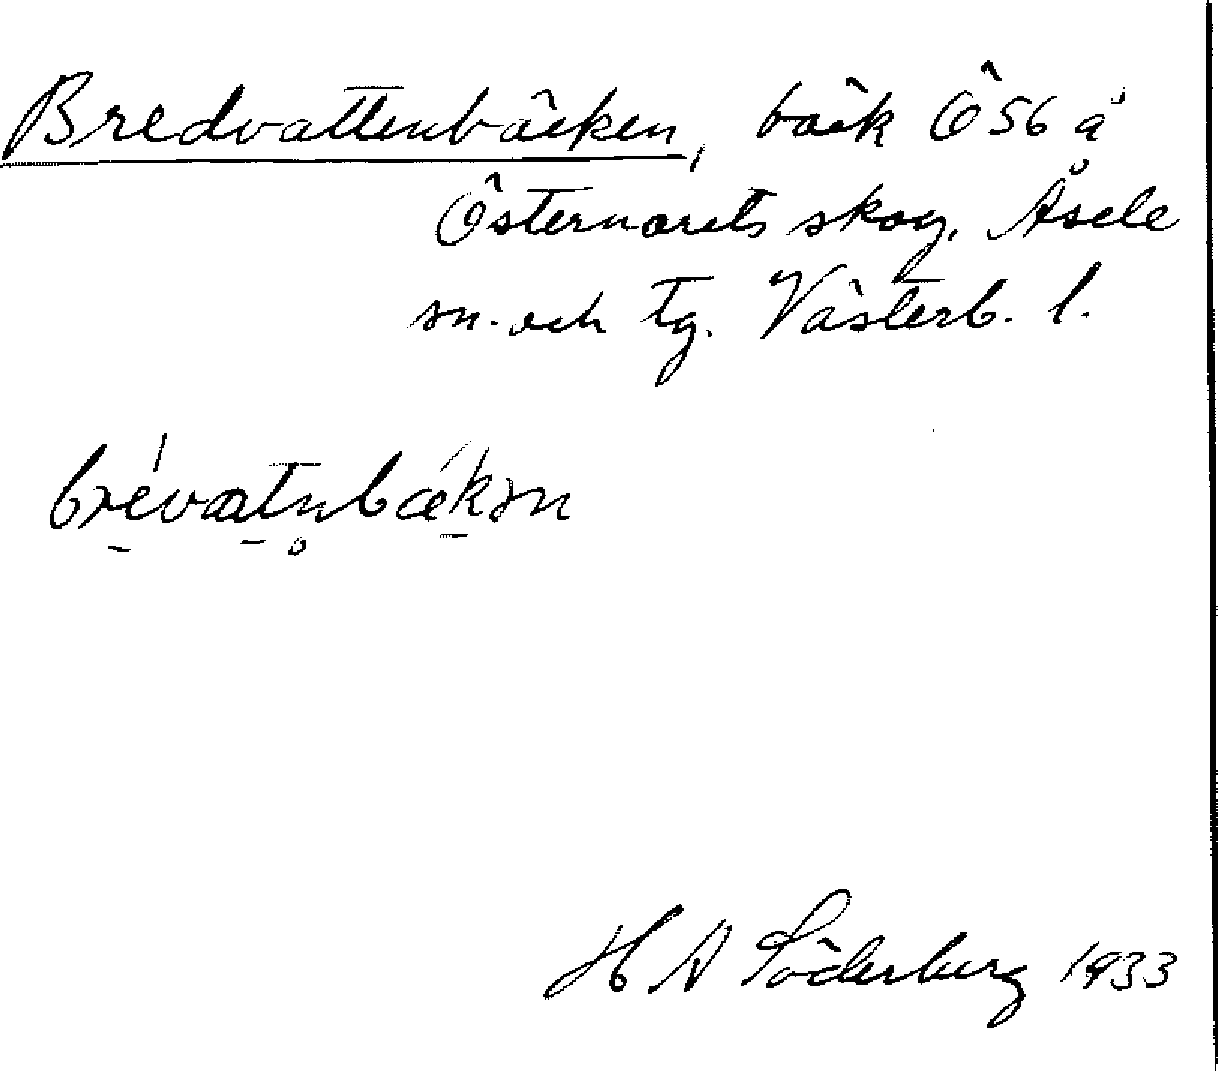 Bredvattenbäcken, bäck Ö56 å
Östernorets skog, Åsele
sn. och tg. Västerb. l.
brévatnbækən
H A Söderberg 1933